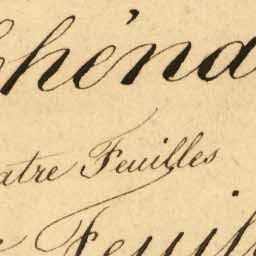 chéna
atre Feuilles
Feuil